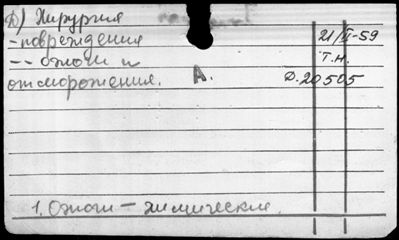 Д) Хирургия
- повреждения 21/I-59
-- ожоги и Т.Н.
отморожения. А. Д. 20505
1. Ожоги - химические.